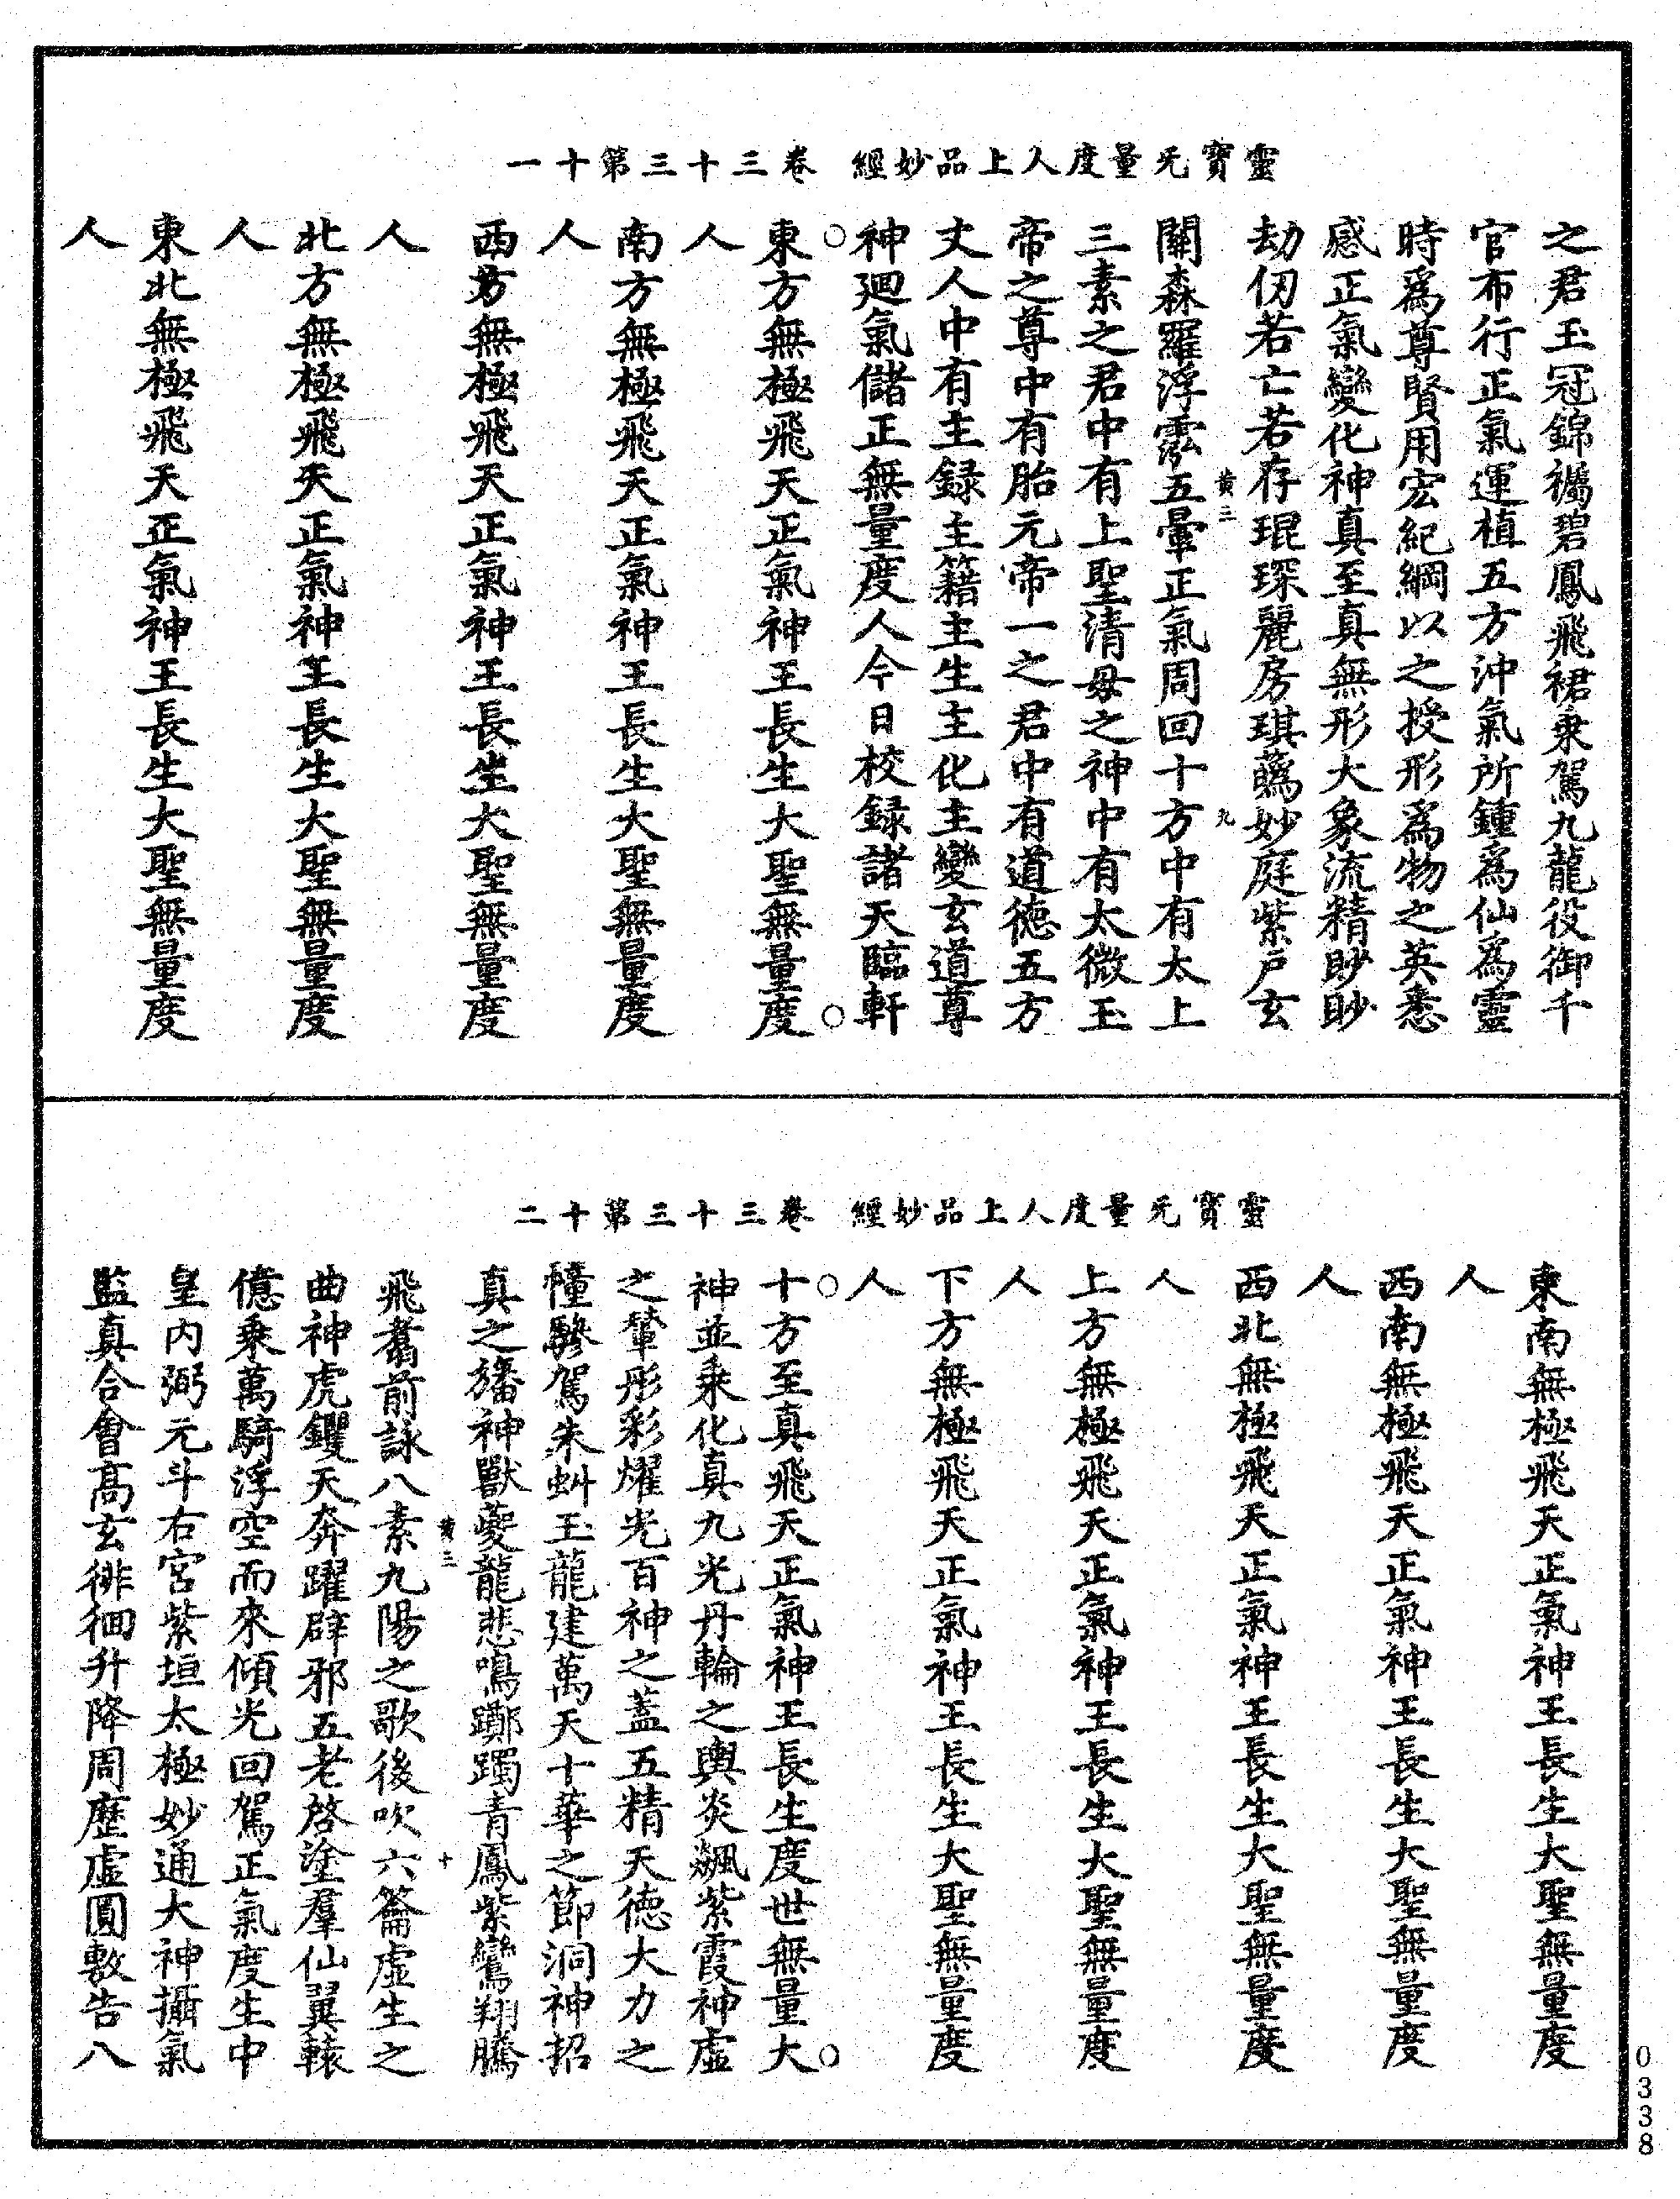 靈寶无量度人上品妙經　卷三十三第十一
之君玉冠錦襦碧鳳飛裙乗駕九龍役御千
官布行正氣運植五方沖氣所鍾為仙為靈
時為尊賢用宏紀綱以之授形為物之英悉
感正氣變化神真至真無形大象流精眇眇
劫仞若亡若存琨琛麗房琪蘤妙庭紫戶玄
黃三　九
關森羅浮澐五暈正氣周回十方中有太上
三素之君中有上聖清母之神中有太微玉
帝之尊中有胎元帝一之君中有道德五方
丈人中有主録主籍主生主化主變玄道尊
神廻氣儲正無量度人今日校録諸天臨軒
○　○
東方無極飛天正氣神王長生大聖無量度
人
南方無極飛天正氣神王長生大聖無量度
人
西方無極飛天正氣神王長生大聖無量度
人
北方無極飛天正氣神王長生大聖無量度
人
東北無極飛天正氣神王長生大聖無量度
人
靈寶无量度人上品妙經　卷三十三第十二
東南無極飛天正氣神王長生大聖無量度
人
西南無極飛天正氣神王長生大聖無量度
人
西北無極飛天正氣神王長生大聖無量度
人
上方無極飛天正氣神王長生大聖無量度
人
下方無極飛天正氣神王長生大聖無量度
人
○　○
十方至真飛天正氣神王長生度世無量大
神並乗化真九光丹輪之輿炎飊紫霞神虛
之輦彤彩燿光百神之蓋五精天德大力之
幢驂駕朱虯玉龍建萬天十華之節洞神招
真之旛神獸夔龍悲鳴躑躅青鳳紫鸞翔騰
黃三　十
飛翥前詠八素九陽之歌後吹六籥虛生之
曲神虎钁天奔躍辟邪五老啓塗羣仙翼轅
億乗萬騎浮空而來傾光回駕正氣度生中
皇内弼元斗右宮紫垣太極妙通大神攝氣
監真合會高玄徘徊升降周歷虛圓敷告八
0338